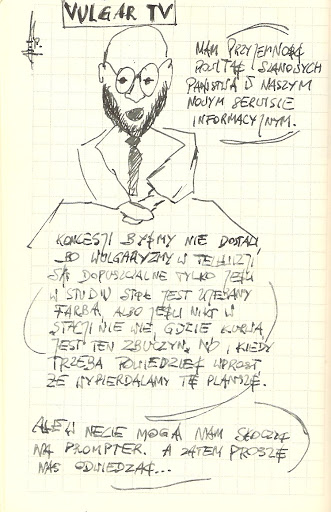 VULGAR TV
MAM PRZYJEMNOŚĆ
POWITAĆ SZANOWNYCH
PAŃSTWA W NASZYM
NOWYM SERWISIE
INFORMACYJNYM.
KONCESJI BYŚMY NIE DOSTALI
BO WULGARYZMY W TELEWIZJI
SĄ DOPUSZCZALNE TYLKO JEŚLI
W STUDIU STÓŁ JEST UJEBANY
FARBĄ, ALBO JEŚLI NIKT W
STACJI NIE WIE, GDZIE KURWA
JEST TEN ZBUCZYN, NO I KIEDY
TRZEBA POWIEDZIEĆ WPROST
ŻE WYPIERDALAMY TĘ PLANSZĘ.
ALE W NECIE MOGĄ NAM SKOCZYĆ
NA PROMPTER. A ZATEM PROSZĘ
NAS ODWIEDZAĆ...